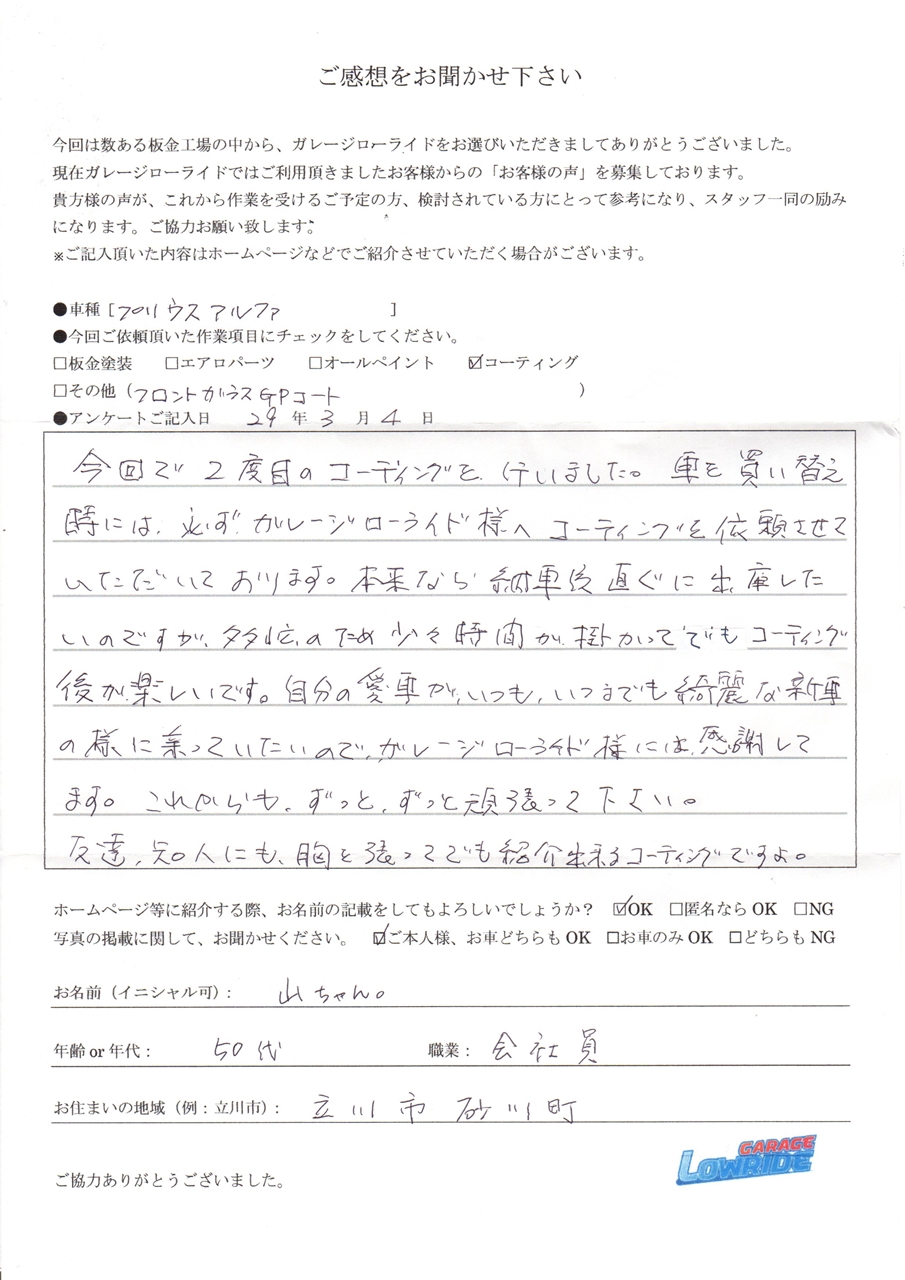 ご感想をお聞かせ下さい
今回は数ある板金工場の中から、ガレージローライドをお選びいただきましてありがとうございました。
現在ガレージローライドではご利用頂きましたお客様からの「お客様の声」を募集しております。
貴方様の声が、これから作業を受けるご予定の方、検討されている方にとって参考になり、スタッフ一同の励み
になります。ご協力お願い致します。
※ご記入頂いた内容はホームページなどでご紹介させていただく場合がございます。
●車種 [プリウスアルファ ]
●今回ご依頼頂いた作業項目にチェックをしてください。
□板金塗装 □エアロパーツ □オールペイント ☑コーティング
□その他 (フロントガラスGPコート )
●アンケートご記入日 29 年 3 月 4 日
今回で2度目のコーティングを、行いました。車を買い替え
時には、必ずガレージローライド様へコーティングを依頼させて
いただいております。本来なら納車後直ぐに出庫した
いのですが、多忙のため少々時間が掛かってでもコーティング
後が楽しいです。自分の愛車が、いつも、いつまでも綺麗な新車
の様に乗っていたいので、ガレージローライド様には、感謝して
ます。これからも、ずっと、ずっと頑張って下さい。
友達、知人にも、胸を張ってでも紹介出来るコーティングですよ。
ホームページ等に紹介する際、お名前の記載をしてもよろしいでしょうか? ☑OK □匿名なら OK □NG
写真の掲載に関して、お聞かせください。 ☑ご本人様、お車どちらも OK □お車のみ OK □どちらも NG
お名前(イニシャル可): 山ちゃん。
年齢 or 年代: 50代 職業: 会社員
お住まいの地域(例:立川市): 立川市 砂川町
GARAGE
LOWRIDE
ご協力ありがとうございました。